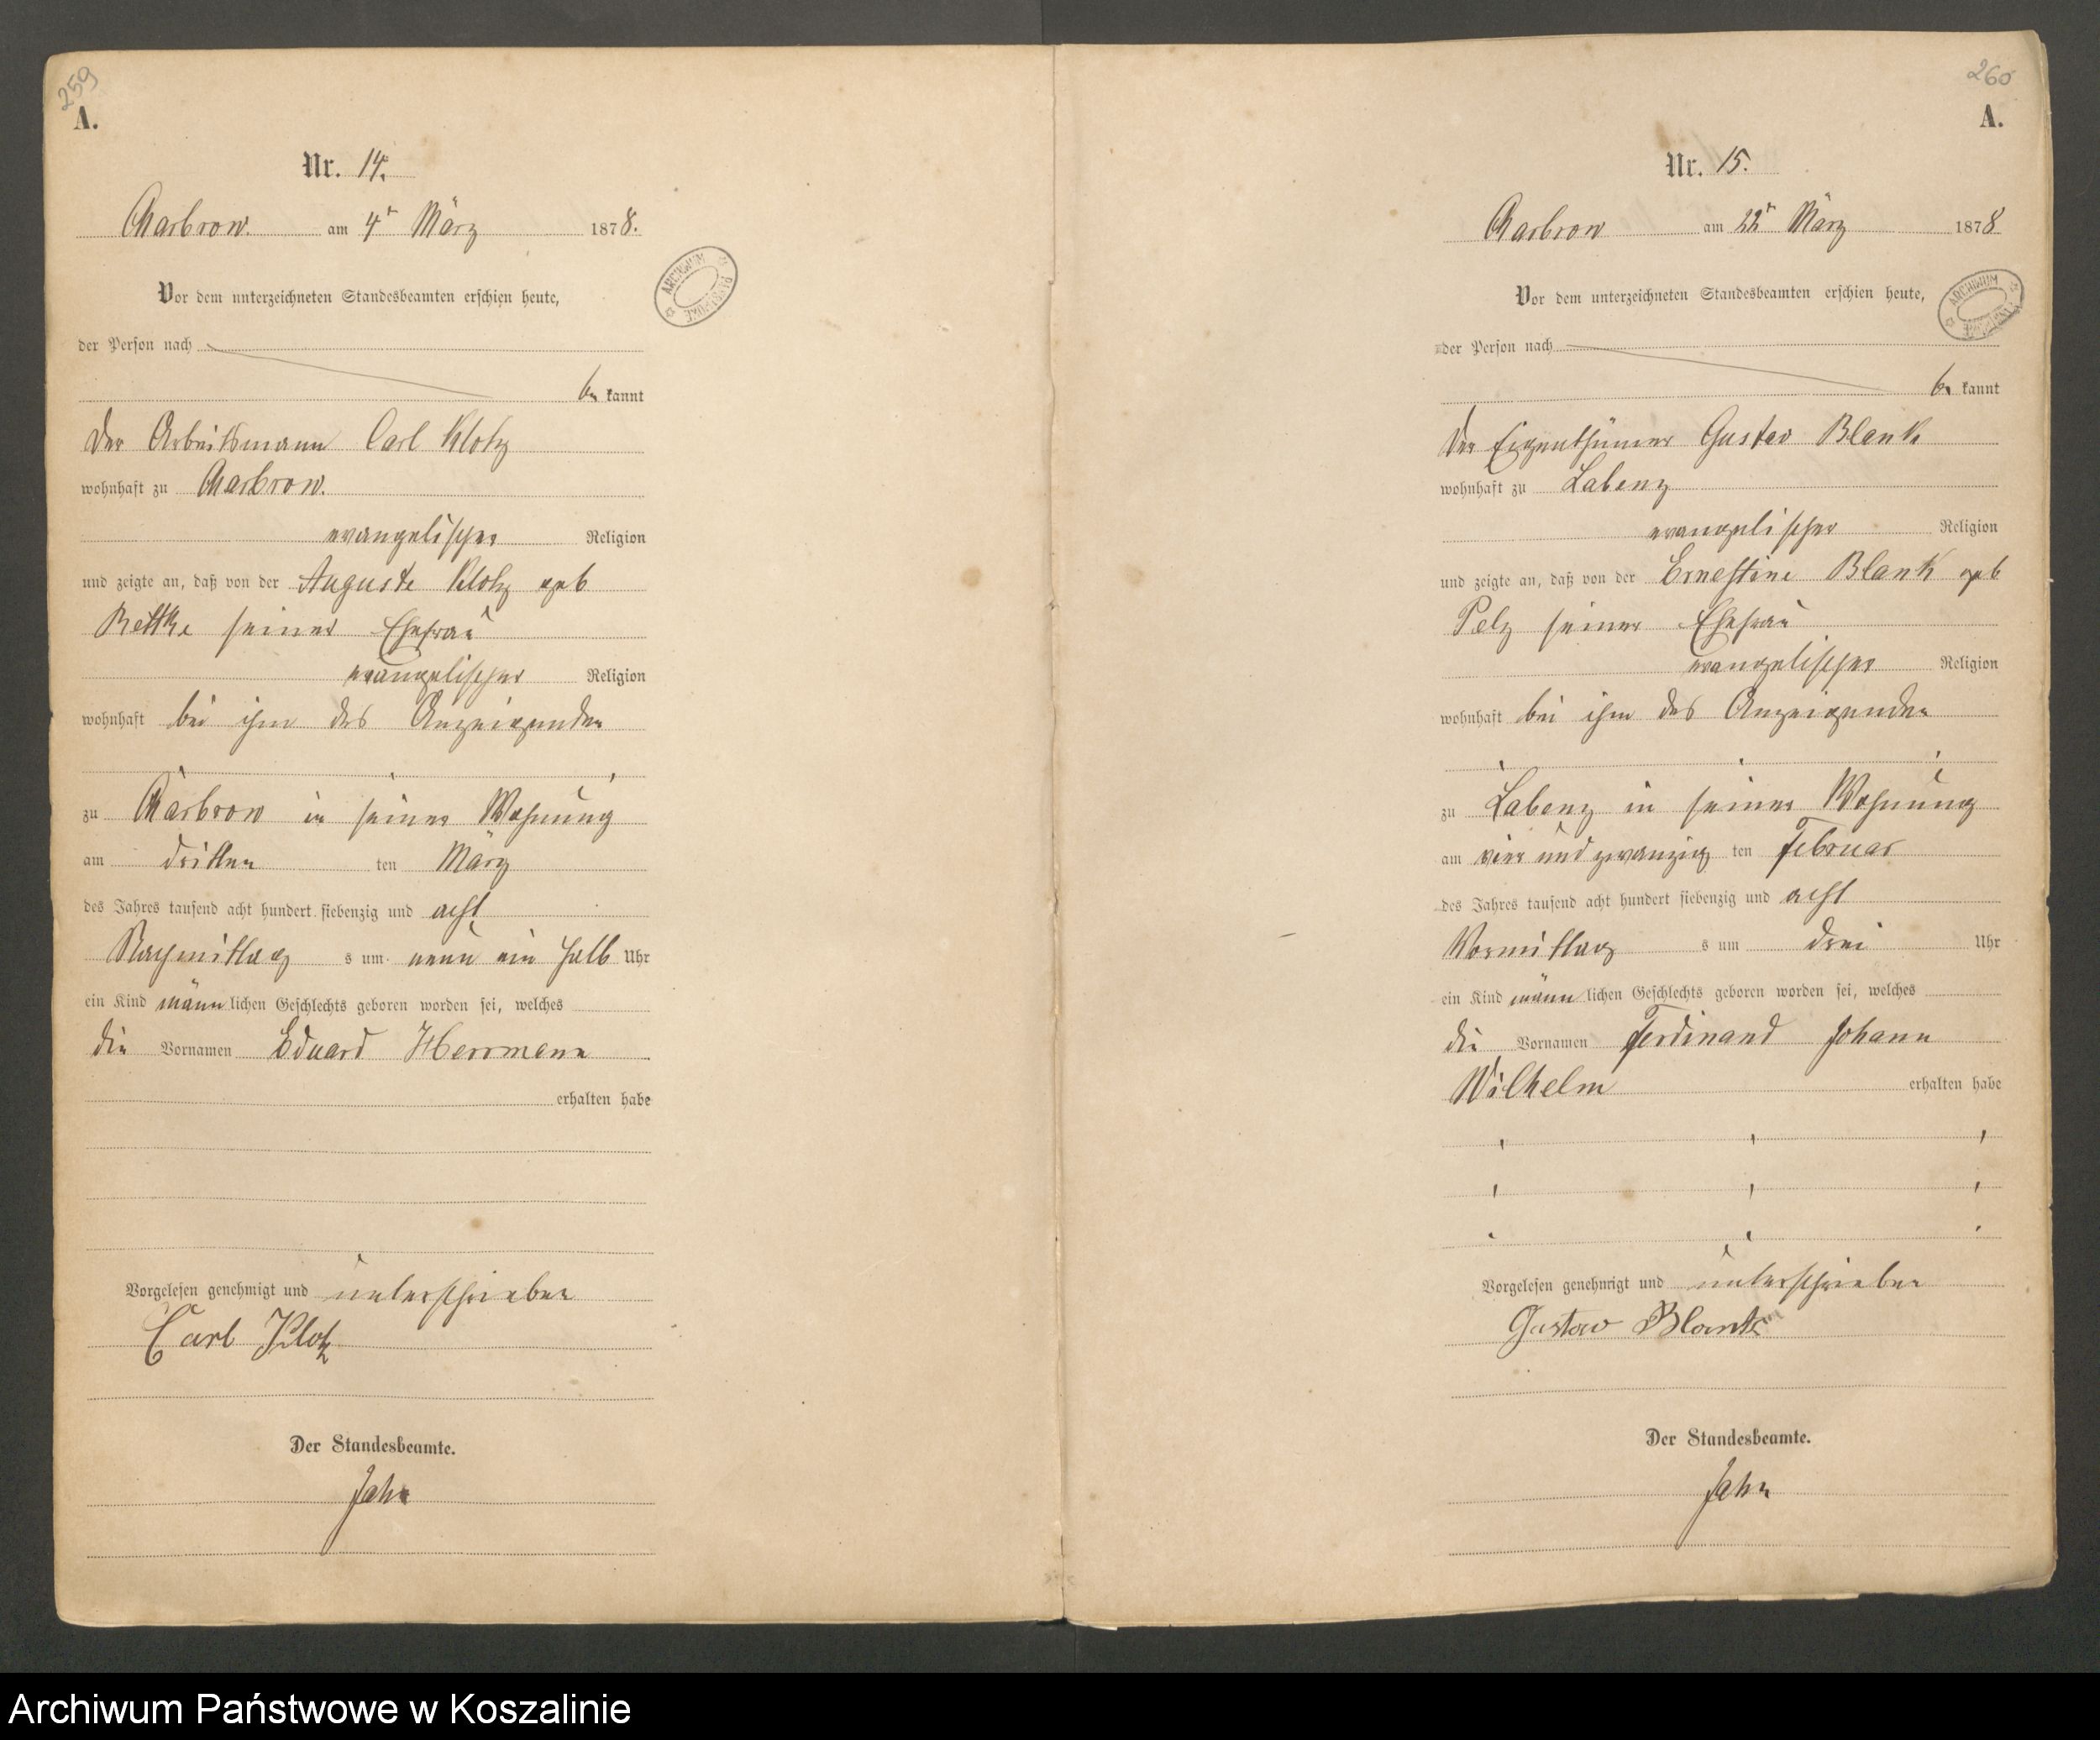 259
A.
Nr. 14.
Charbrow. am 4t März 1878.
ARCHIWUM
Vor dem unterzeichneten Standesbeamten erschien heute,
der Person nach
be kannt
der Arbeitsmann Carl Klotz
wohnhaft zu Charbrow.
evangelischer Religion
und zeigte an, daß von der Auguste Klotz geb
Rettke seiner Ehefrau
evangelischer Religion
wohnhaft bei ihm des Anzeigenden
zu Charbrow in seiner Wohnung
am dritten ten März
des Jahres tausend acht hundert siebenzig und acht
Nachmittag s um neun ein halb Uhr
ein Kind männ lichen Geschlechts geboren worden sei, welches
die Vornamen Eduard Herrmann
erhalten habe
Vorgelesen genehmigt und unterschrieben
Carl Klotz
Der Standesbeamte.
Jahn
260
A.
Nr. 15.
Charbrow am 22t März 1878
ARCHIWUM
Vor dem unterzeichneten Standesbeamten erschien heute,
der Person nach
be kannt
der Eigenthümer Gustav Blank
wohnhaft zu Labenz
evangelischer Religion
und zeigte an, daß von der Ernestine Blank geb
Pelz seiner Ehefrau
evangelischer Religion
wohnhaft bei ihm des Anzeigenden
zu Labenz in seiner Wohnung
am vier und zwanzig ten Februar
des Jahres tausend acht hundert siebenzig und acht
Vormittag s um drei Uhr
ein Kind männ lichen Geschlechts geboren worden sei, welches
die Vornamen Ferdinand Johann
Wilhelm erhalten habe
Vorgelesen genehmigt und unterschrieben
Gustav Blank
Der Standesbeamte.
Jahn
Archiwum Państwowe w Koszalinie